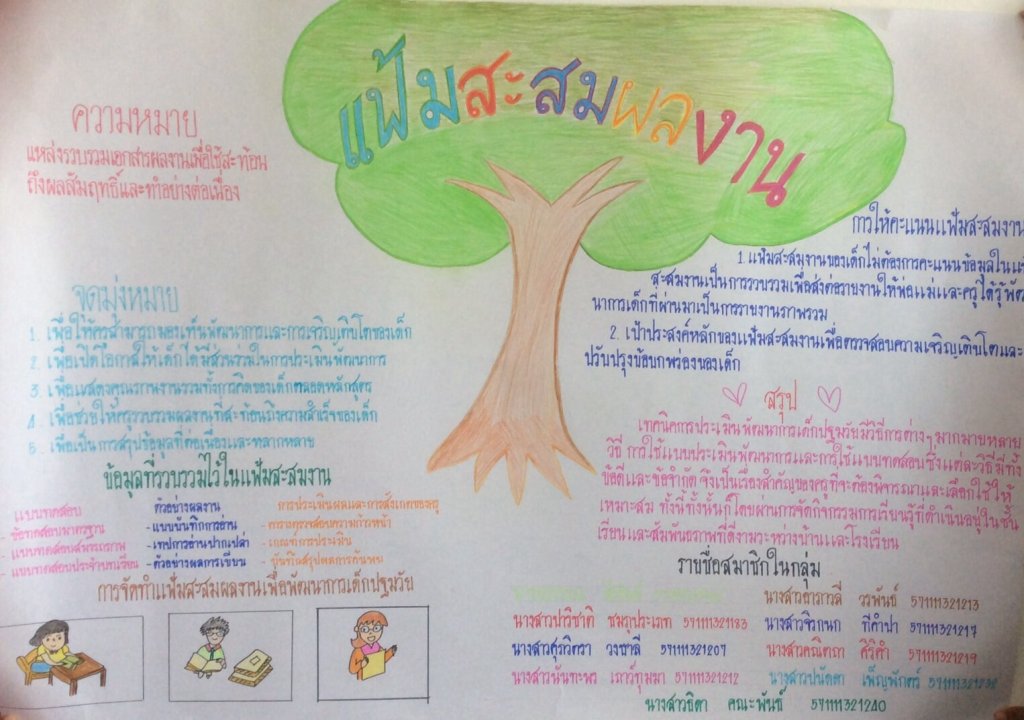 แฟ้มสะสมผลงาน
ความหมาย
แหล่งรวบรวมเอกสารผลงานเพื่อใช้สะท้อน
ถึงผลสัมฤทธิ์และทำอย่างต่อเนื่อง
จุดมุ่งหมาย
1. เพื่อให้ครูสามารถมองเห็นพัฒนาการและการเจริญเติบโตของเด็ก
2. เพื่อเปิดโอกาสให้เด็กได้มีส่วนร่วมในการประเมินพัฒนาการ
3. เพื่อแสดงคุณภาพงานรวมทั้งการคิดของเด็กตลอดหลักสูตร
4. เพื่อช่วยให้ครูรวบรวมผลงานที่สะท้อนถึงความสำเร็จของเด็ก
5. เพื่อเป็นการสรุปข้อมูลที่ต่อเนื่องและหลากหลาย
ข้อมูลที่รวบรวมไว้ในแฟ้มสะสมงาน
แบบทดสอบ
- ข้อทดสอบมาตรฐาน
- แบบทดสอบสมรรถภาพ
- แบบทดสอบประจำบทเรียน
ตัวอย่างผลงาน
- แบบบันทึกการอ่าน
- เทปการอ่านปากเปล่า
- ตัวอย่างผลการเขียน
การประเมินผลและการสังเกตของครู
- การตรวจสอบความก้าวหน้า
- เกณฑ์การประเมิน
- บันทึกสรุปผลการค้นพบ
การจัดทำแฟ้มสะสมผลงานเพื่อพัฒนาการเด็กปฐมวัย
การให้คะแนนแฟ้มสะสมงาน
1. แฟ้มสะสมงานของเด็กไม่ต้องการคะแนนข้อมูลใน
สะสมงานเป็นการรวบรวมเพื่อส่งต่อรายงานให้พ่อแม่และครูได้รู้พัฒ
นาการเด็กที่ผ่านมาเป็นการรายงานภาพรวม
2. เป้าประสงค์หลักของแฟ้มสะสมงานเพื่อตรวจสอบความเจริญเติบโตและ
ปรับปรุงข้อบกพร่องของเด็ก
สรุป
เทคนิคการประเมินพัฒนาการเด็กปฐมวัยมีวิธีการต่างๆมากมายหลาย
วิธี การใช้แบบประเมินพัฒนาการและการใช้แบบทดสอบซึ่งแต่ละวิธีมีทั้ง
ข้อดีและข้อจำกัด จึงเป็นเรื่องสำคัญของครูที่จะต้องพิจารณาและเลือกใช้ให้
เหมาะสม ทั้งนี้ทั้งนั้นก็โดยผ่านการจัดกิจกรรมการเรียนรู้ที่ดำเนินอยู่ในชั้น
เรียนและสัมพันธภาพที่ดีงามระหว่างบ้านและโรงเรียน
รายชื่อสมาชิกในกลุ่ม
นางสาวธารารลี่ วรพันธ์ 571111321213
นางสาวปาริชาติ ชมภูประเภท 571111321183 นางสาวจิรกนก ทีคำปา 571111321217
นางสาวศุภวิตรา วงชาลี 571111321207 นางสาวคณิตถา ศิริคำ 571111321219
นางสาวนันทะพร เถาว์ทุมมา 571111321212 นางสาวปนัดดา เพ็ญพักตร์
นางสาวธิดา คณะพันธ์ 571111321240